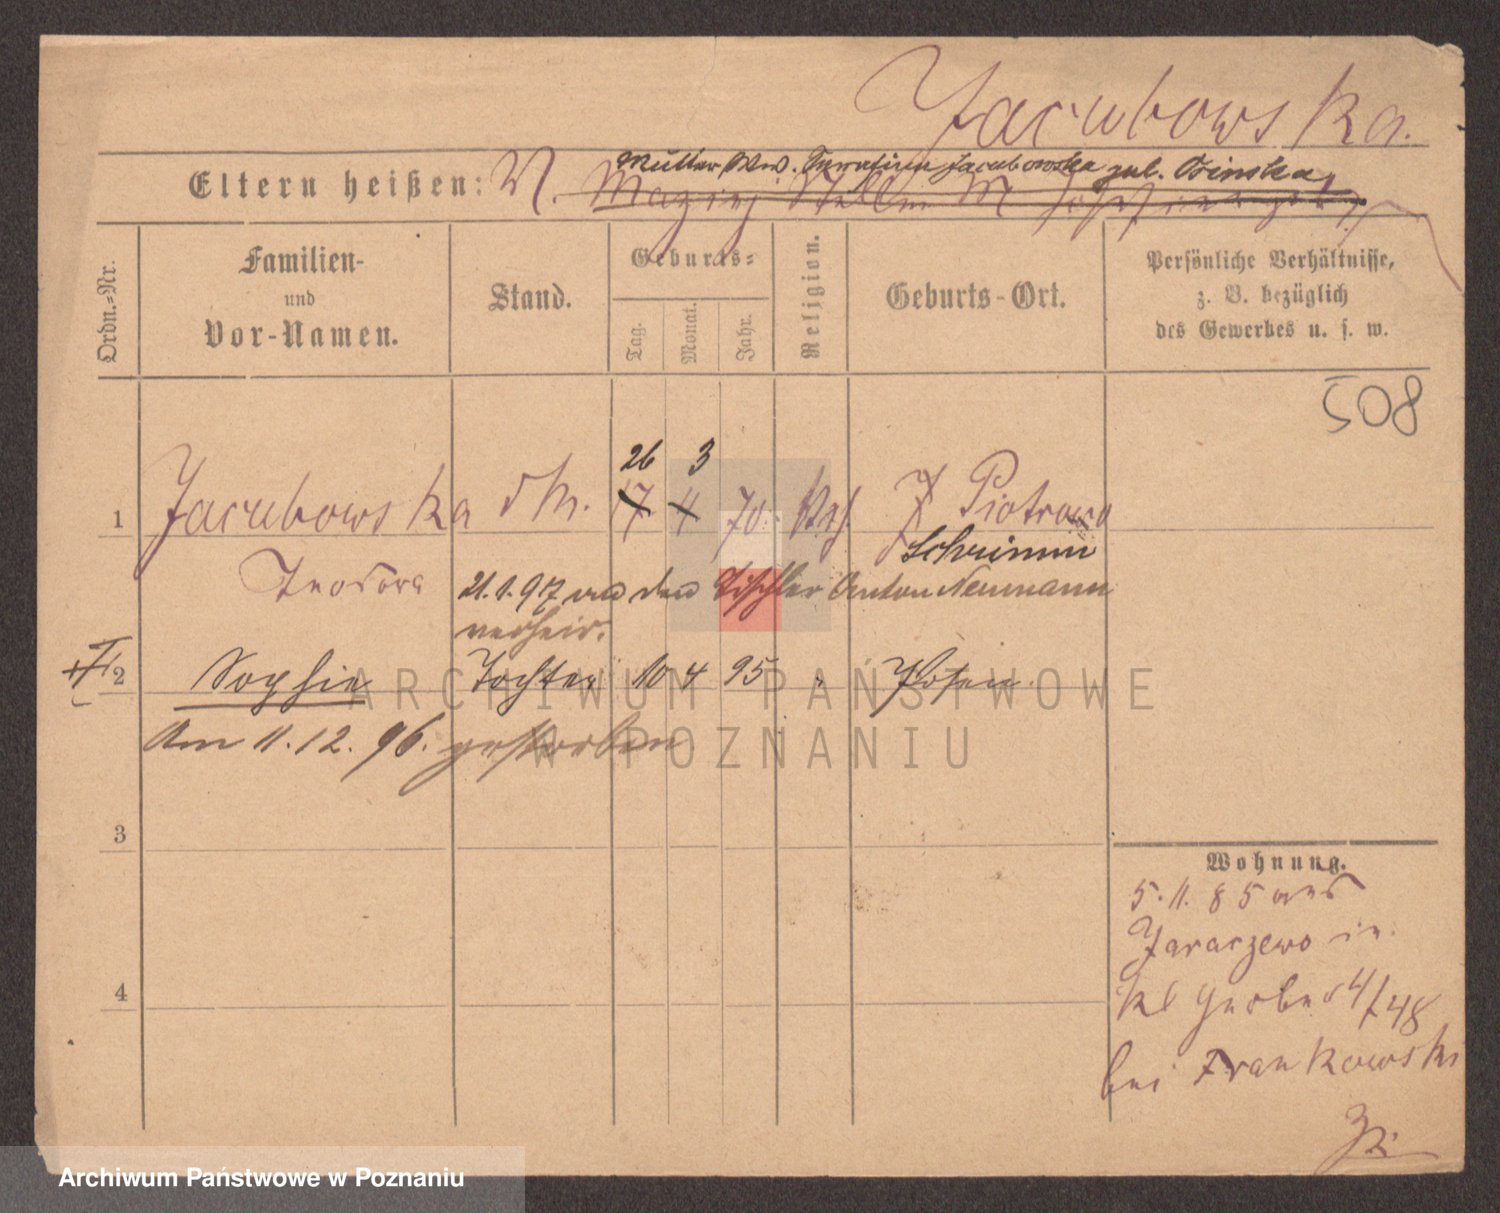 Jacubowska.
Mutter Ww. Serafina Jacubowska geb. Osinska
Eltern heißen: V. M.
Ordn.-Nr.
Familien-
und
Vor-Namen.
Stand.
Geburts-
Tag.
Monat.
Jahr.
Religion.
Geburts-Ort.
Persönliche Verhältnisse,
z. B. bezüglich
des Gewerbes u. s. w.
508
26 3
1 Jacubowska 17 4 70 Piotrowo
Schrimm
Teodora 21.1.97 an den Tischler Anton Neumann
verheir.
2 Sophie Tochter 10 4 95 " Posen
Am 11.12.96. gestorben
3
4
Wohnung.
5.11.85 aus
Jaraczewo in
Kl Gerber 4/48
bei Frankowski
ARCHIWUM PAŃSTWOWE
W POZNANIU
Archiwum Państwowe w Poznaniu